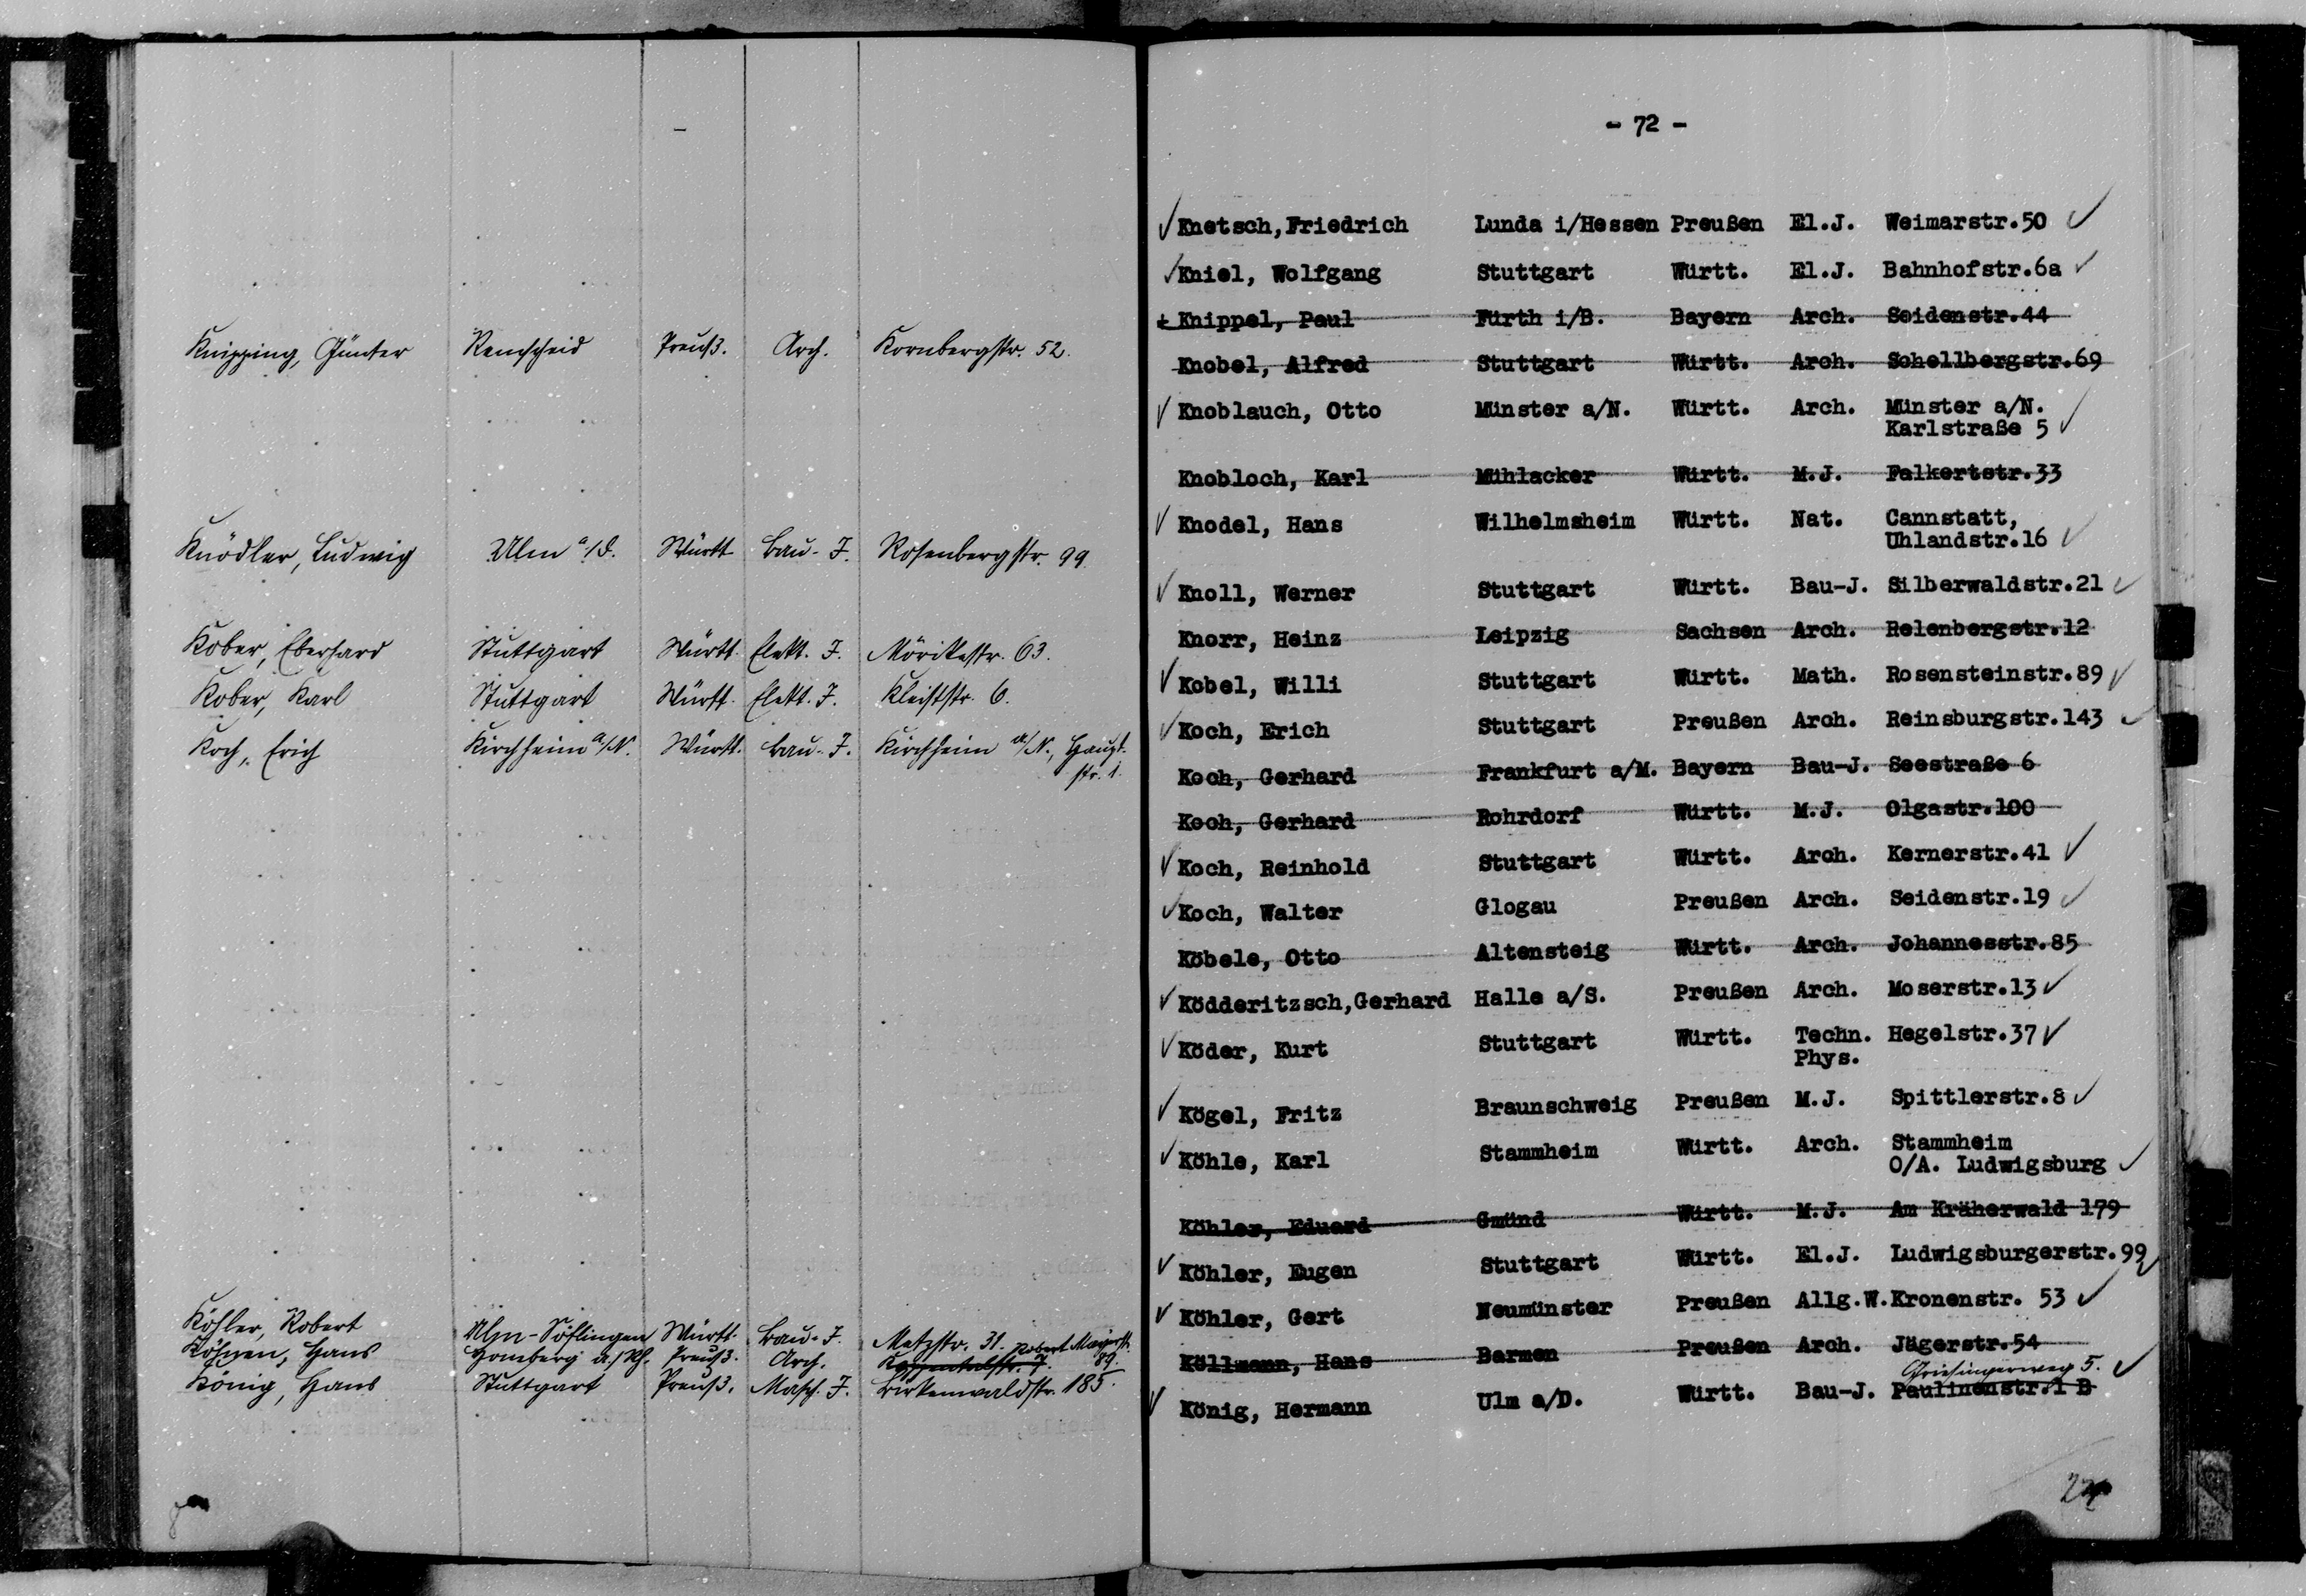 Knipping, Günter Remscheid Preuß. Arch. Kornbergstr. 52.
Knödler, Ludwig Ulm a/D. Württ. Bau-J. Rosenbergstr. 99.
Kober, Eberhard Stuttgart Württ. Elekt. J. Mörikestr. 63.
Kober, Karl Stuttgart Württ. Elekt. J. Kleiststr. 6.
Koch, Erich Kirchheim a/N. Württ. Bau-J. Kirchheim a/N., Haupt-
str. 1.
Köhler, Robert Ulm-Söflingen Württ. Bau-J. Metzstr. 31.
Robert Mayerstr.
Hans Homberg a./Rh. Preuß. Arch. 89.
König, Hans Stuttgart Preuß. Masch. J. Birkenwaldstr. 185.
- 72 -
Knetsch,Friedrich Lunda i/Hessen Preußen El.J. Weimarstr.50
Kniel, Wolfgang Stuttgart Württ. El.J. Bahnhofstr.6a
Knippel, Paul Fürth i/B. Bayern Arch. Seidenstr.44
Knobel, Alfred Stuttgart Württ. Arch. Schellbergstr.69
Knoblauch, Otto Münster a/N. Württ. Arch. Münster a/N.
Karlstraße 5
Knobloch, Karl Mühlacker Württ. M.J. Falkertstr.33
Knodel, Hans Wilhelmsheim Württ. Nat. Cannstatt,
Uhlandstr.16
Knoll, Werner Stuttgart Württ. Bau-J. Silberwaldstr.21
Knorr, Heinz Leipzig Sachsen Arch. Relenbergstr.12
Kobel, Willi Stuttgart Württ. Math. Rosensteinstr.89
Koch, Erich Stuttgart Preußen Arch. Reinsburgstr.143
Koch, Gerhard Frankfurt a/M. Bayern Bau-J. Seestraße 6
Koch, Gerhard Rohrdorf Württ. M.J. Olgastr.100
Koch, Reinhold Stuttgart Württ. Arch. Kernerstr.41
Koch, Walter Glogau Preußen Arch. Seidenstr.19
Köbele, Otto Altensteig Württ. Arch. Johannesstr.85
Ködderitzsch,Gerhard Halle a/S. Preußen Arch. Moserstr.13
Köder, Kurt Stuttgart Württ. Techn. Hegelstr.37
Phys.
Kögel, Fritz Braunschweig Preußen M.J. Spittlerstr.8
Köhle, Karl Stammheim Württ. Arch. Stammheim
O/A. Ludwigsburg
Köhler, Eduard Gmünd Württ. M.J. Am Kräherwald 179
Köhler, Eugen Stuttgart Württ. El.J. Ludwigsburgerstr.99
Köhler, Gert Neumünster Preußen Allg.W. Kronenstr. 53
Köllmann, Hans Barmen Preußen Arch. Jägerstr.54
Griesingerweg 5.
König, Hermann Ulm a/D. Württ. Bau-J. Paulinenstr.1 B